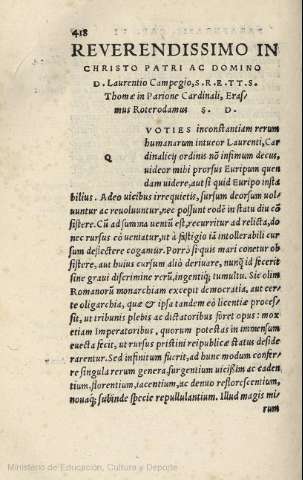 418
REVERENDISSIMO IN
CHRISTO PATRI AC DOMINO
D. Laurentio Campegio, S. R. E. TT. S.
Thomæ in Parione Cardinali, Eras=
mus Roterodamus S. D.
Q VOTIES inconstantiam rerum
humanarum intueor Laurenti, Car
dinalicij ordinis nõ infimum decus,
uideor mihi prorsus Euripum quen
dam uidere, aut si quid Euripo insta
bilius. Adeo uicibus irrequietis, sursum deorsum uol=
uuntur ac reuoluuntur, nec possunt eodē in statu diu cõ
sistere. Cũ ad summa uentũ est, recurritur ad relicta, do=
nec rursus eò ueniatur, ut à fastigio iã intollerabili cur
sum deflectere cogamur. Porrò si quis mari conetur ob
sistere, aut huius cursum aliò deriuare, nunq̃ id fecerit
sine graui discrimine rerũ, ingentiq́; tumultu. Sic olim
Romanorũ monarchiam excepit democratia, aut cer=
te oligarchia, quæ & ipsa tandem eò licentiæ proces=
sit, ut tribunis plebis ac dictatoribus foret opus: mox
etiam Imperatoribus, quorum potestas in immensum
euecta fecit, ut rursus pristini reipublicæ status deside
rarentur. Sed infinitum fuerit, ad hunc modum confer=
re singula rerum genera, surgentium uicißim ac caden
tium, florentium, iacentium, ac denuo reflorescentium,
nouaq́; subinde specie repullulantium. Illud magis mi
rum
Ministerio de Educación, Cultura y Deporte